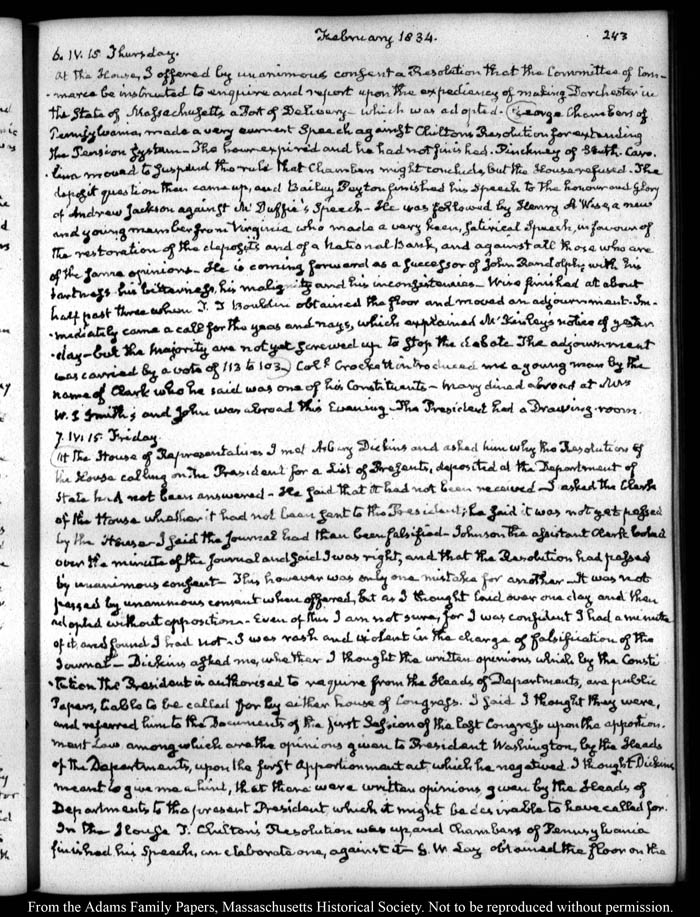 February 1834.
243
6. IV. 15 Thursday.
At the House, I offered by unanimous consent a Resolution that the Committee of Com-
-merce be instructed to enquire and report upon the expediency of making Dorchester in
the State of Massachusetts a Port of Delivery which was adopted. George Chambers of
Pennsylvania, made a very earnest Speech against Chilton's Resolution for extending
the Pension System. The hour expired and he had not finished. Pinckney of South Caro-
lina moved to suspend the rule that Chambers might conclude, but the House refused. The
deposit question then came up, and Bailey Peyton finished his Speech to the honour and glory
of Andrew Jackson against Mc Duffie's Speech. He was followed by Henry A Wise, a new
and young member from Virginia who made a very keen, satirical Speech, in favour of
the restoration of the deposits and of a National Bank, and against all those who are
of the same opinions. He is coming forward as a successor of John Randolph, with his
tartness his bitterness, his malignity and his inconsistencies. Wise finished at about
half past three when J. T Bouldin obtained the floor and moved an adjournment. Im-
-mediately came a call for the yeas and nays, which explained Mc Kinley's notice of yester-
-day but the majority are not yet screwed up to stop the debate The adjournment
was carried by a vote of 113 to 103. Coll. Crockett introduced me a young man by the
name of Clark who he said was one of his Constituents. Mary dined abroad at Mrs
W. S Smith's and John was abroad this Evening. The President had a Drawing-room.
7. IV. 15 Friday.
At the House of Representatives I met Asbury Dickins and asked him why the Resolution of
the House calling on the President for a List of Presents, deposited at the Department of
State had not been answered. He said that it had not been received I asked the Clerk
of the House whether it had not been sent to the President; he said it was not yet passed
by the House I said the Journal had then been falsified. Johnson the assistant Clerk looked
over the minute of the Journal and said I was right, and that the Resolution had passed
by unanimous consent This however was only one mistake for another It was not
passed by unanimous consent when offered, but as I thought laid over one day and then
adopted without opposition. Even of this I am not sure, for I was confident I had a minute
of it, and found I had not. I was rash and violent in the charge of falsification of the
Journal. Dickins asked me, whether I thought the written opinions which by the Consti
-tution the President is authorised to require from the Heads of Departments, are public
Papers, liable to be called for by either house of Congress. I said I thought they were,
and referred him to the Documents of the first Session of the last Congress upon the apportion-
ment Law among which are the opinions given to President Washington, by the Heads
of the Departments, upon the first Apportionment act which he negatived. I thought Dickins
meant to give me a hint, that there were written opinions given by the Heads of
Departments to the present President which it might be desirable to have called for.
In the House T. Chilton's Resolution was up and Chambers of Pennsylvania
finished his Speech, an elaborate one, against it G. W Lay obtained the floor on the
From the Adams Family Papers, Massachusetts Historical Society. Not to be reproduced without permission.